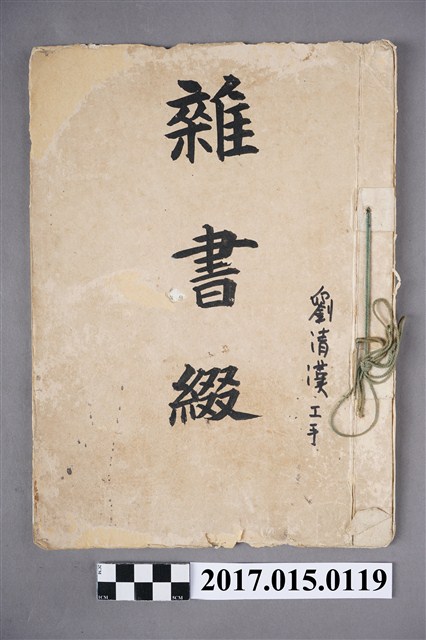 雜書綴
劉清漢工手
2017.015.0119
5CM
5CM